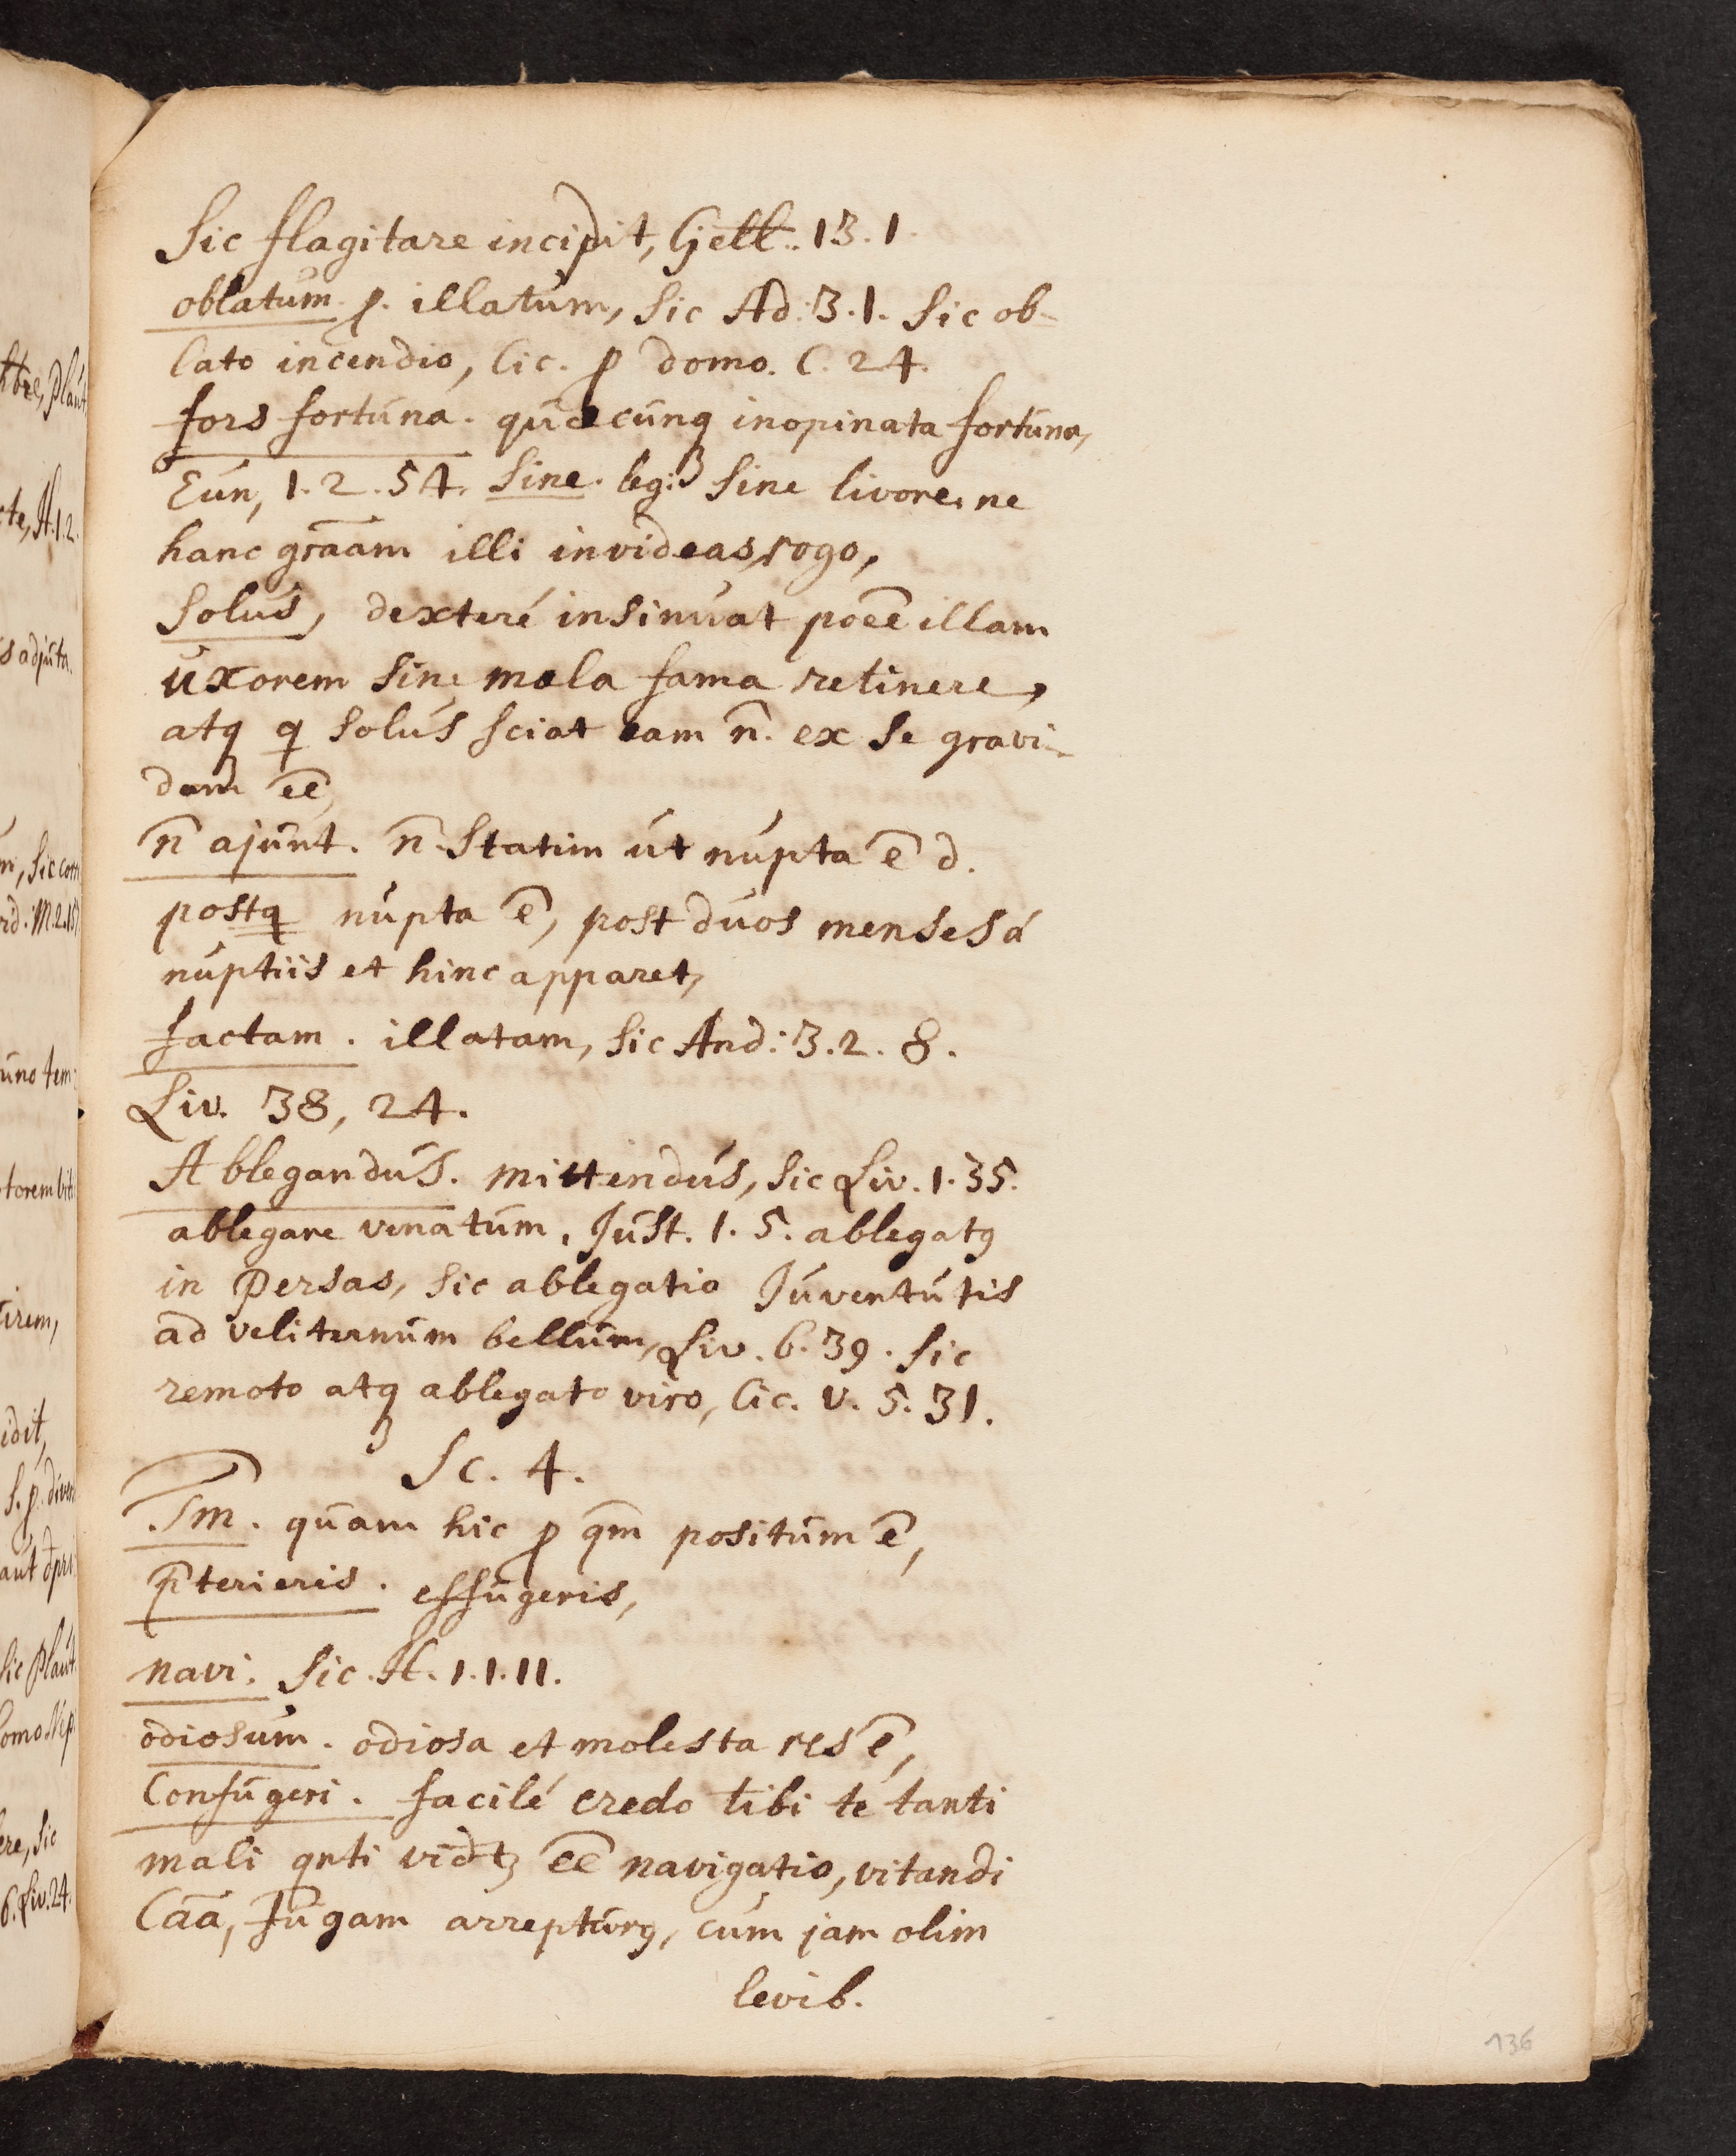 Sic flagitare incipit, Gell. 13. 1.
oblatum. p. illatum, sic Ad: 3. 1. sic ob-
lato incendio, Cic. p domo. C. 24.
fors fortuna. quæcunq inopinata fortuna,
Eun, 1. 2. 54. Sine. leg: sine livore. ne
hanc grãam illi invideas, rogo,
Solus, dexteré insinuat poēē illam
uxorem sine mala fama retinere,
atq q solus sciat eam n̄. ex se gravi-
dam ēē,
n̄ ajunt. n̄. statim ut nupta ē d.
postq nupta ē, post duos menses á
nuptiis et hinc apparet,
factam. illatam, sic And: 3. 2. 8.
Liv. 38, 24.
Ablegandus. mittendus, sic Liv. 1. 35.
ablegare venatum. Just. 1. 5. ablegatꝰ
in Persas, sic ablegatio Juventutis
ad veliternum bellum, Liv. 6. 39. sic
remoto atq ablegato viro, Cic. V. 5. 31.
Sc. 4.
Tm̄. quam hic p qm̄ positum ē,
p̄terieris. effugeris,
navi. sic. H. 1. 1. 11.
odiosum. odiosa et molesta res ē,
Confugeri. facilé credo tibi te tanti
mali qnti vidtꝫ ēē navigatio, vitandi
Cāā, fugam arrepturꝰ, cum jam olim
levib.
136
htre, Plaut,
cte, H. 1. 2.
s adjuta.
m, sic com
rd. M. 2. 15
uno tem:
torem vit
tirem,
idit,
S. p. divers
aut
sic Plaut.
omo. Nep
ere, sic
6. Liv. 24.